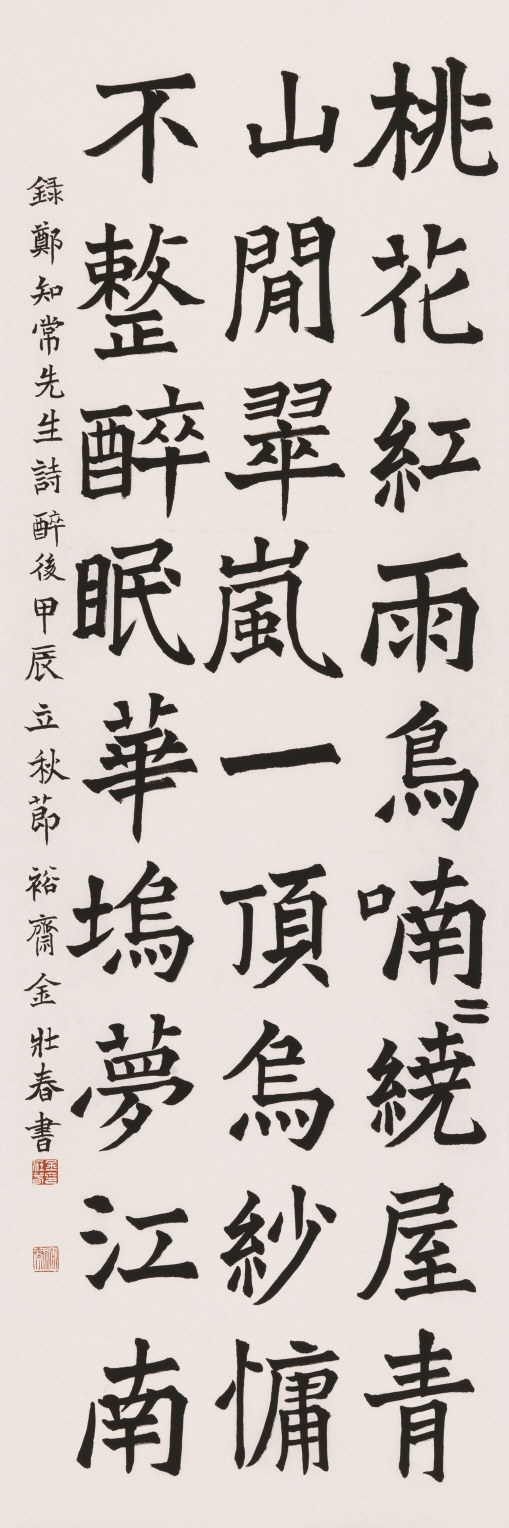 桃花紅雨鳥喃〻繞屋青
山閒翠嵐一頂烏紗慵
不整醉眠華塢夢江南
録鄭知常先生詩醉後甲辰立秋節裕齋金壯春書